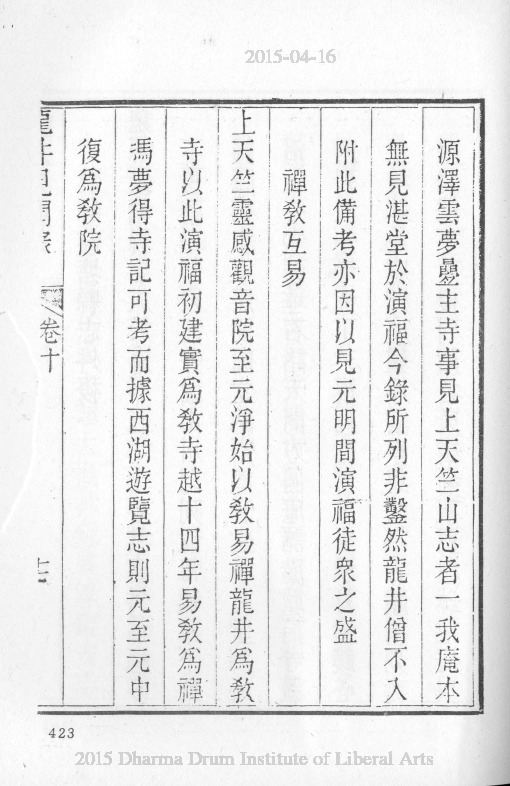 2015-04-16
源澤雲夢疊主寺事見上天竺山志者一我庵本
無見湛堂於演福今錄所列非鑿然龍井僧不入
附此備考亦因以見元明間演福徒衆之盛
禪敎互易
上天竺靈感觀音院至元淨始以敎易禪龍井爲敎
寺以此演福初建實爲敎寺越十四年易敎爲禪
馮夢得寺記可考而據西湖遊覽志則元至元中
復爲敎院
龍井見聞录
卷十
十二
423
2015 Dharma Drum Institute of Liberal Arts